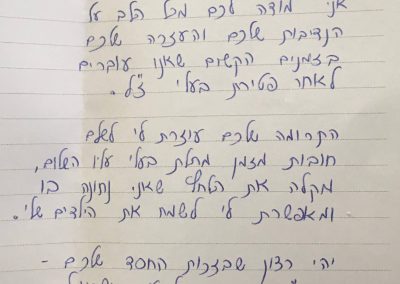 אני מודה לכם מכל הלב על
הנדיבות שלכם והעזרה שלכם
בזמנים הקשים שאנו עוברים
לאחר פטירת בעלי ז"ל.
התרומה שלכם עוזרת לי לשלם
חובות מזמן מחלת בעלי עליו השלום,
מקלה את הלחץ שאני נתונה בו
ומאפשרת לי לשמח את הילדים שלי.
יהי רצון שבזכות החסד שלכם -